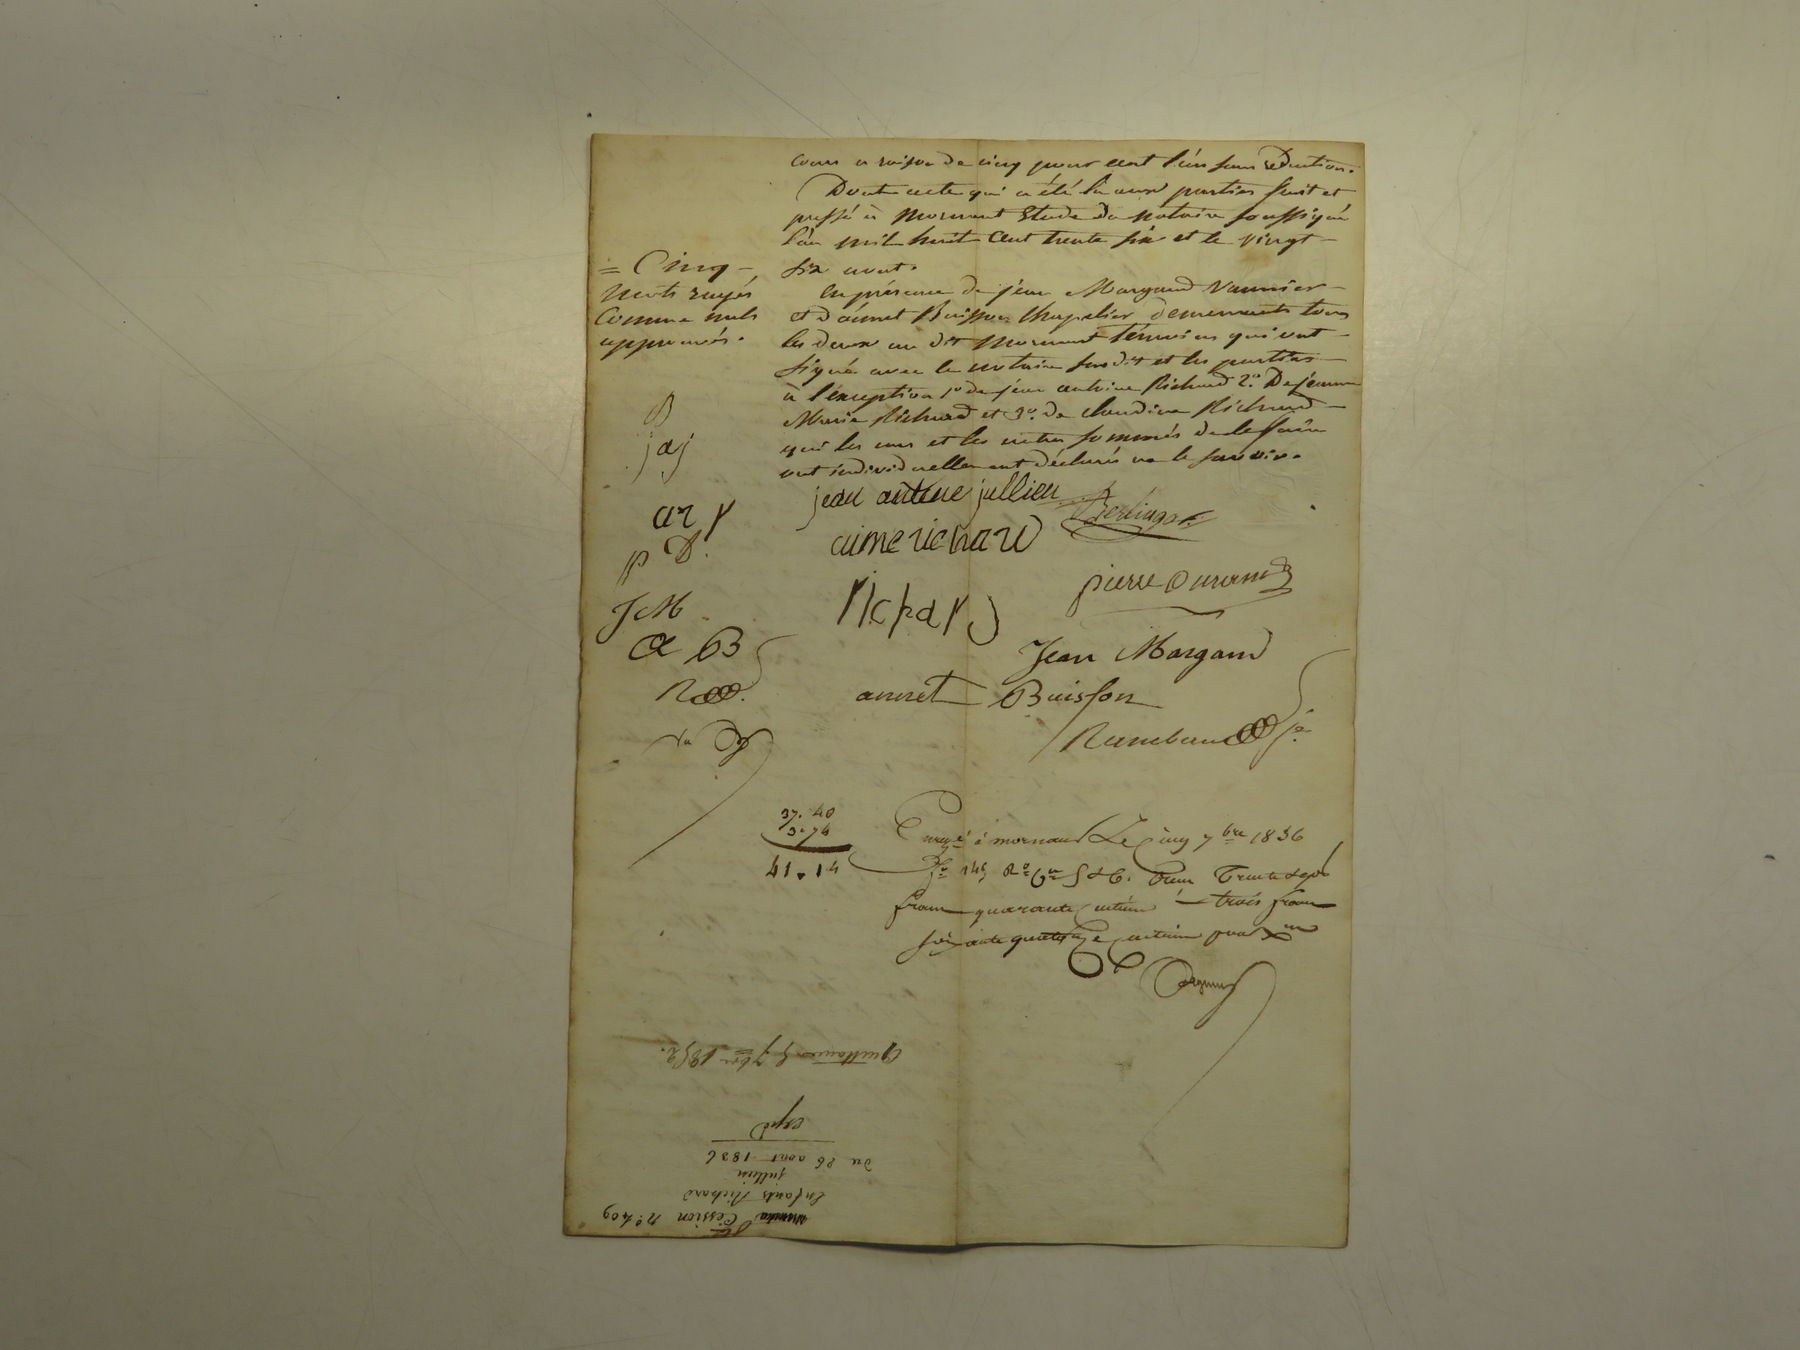 cours a raison de cinq pour cent l'an sans réduction.
Dont acte qui a été lu aux parties fait et
passé à Mornant Etude du notaire soussigné
l'an mil huit cent trente six et le vingt
six aout.
en présence de jean Margand vannier
et d'annet Buisson Chapelier demeurants tous
les deux au dit Mornant témoins qui ont
signé avec le notaire susdit et les parties
à l'exception 1° de jean antoine Richard 2° De jeanne
Marie Richard et 3° de claudine Richard
qui les uns et les autres sommés de le faire
ont individuellement déclarés ne le savoir.
= Cinq
mots rayés
Comme nuls
approuvés.
B
jaj
ar r
p D.
JM
a B
R
jean antoine jullien
aime richard
pierre Durand
richard
Jean Margand
annet Buisson
37. 40
3. 74
41. 14
à mornant Le Cinq 7bre 1836
f° 145 R° Trente sept
francs quarante Centimes trois francs
soixante quatorze Centimes pour
Quittance 5 7bre 1852.
expé
du 26 aout 1836
jullien
Enfants Richard
Cession n° 409